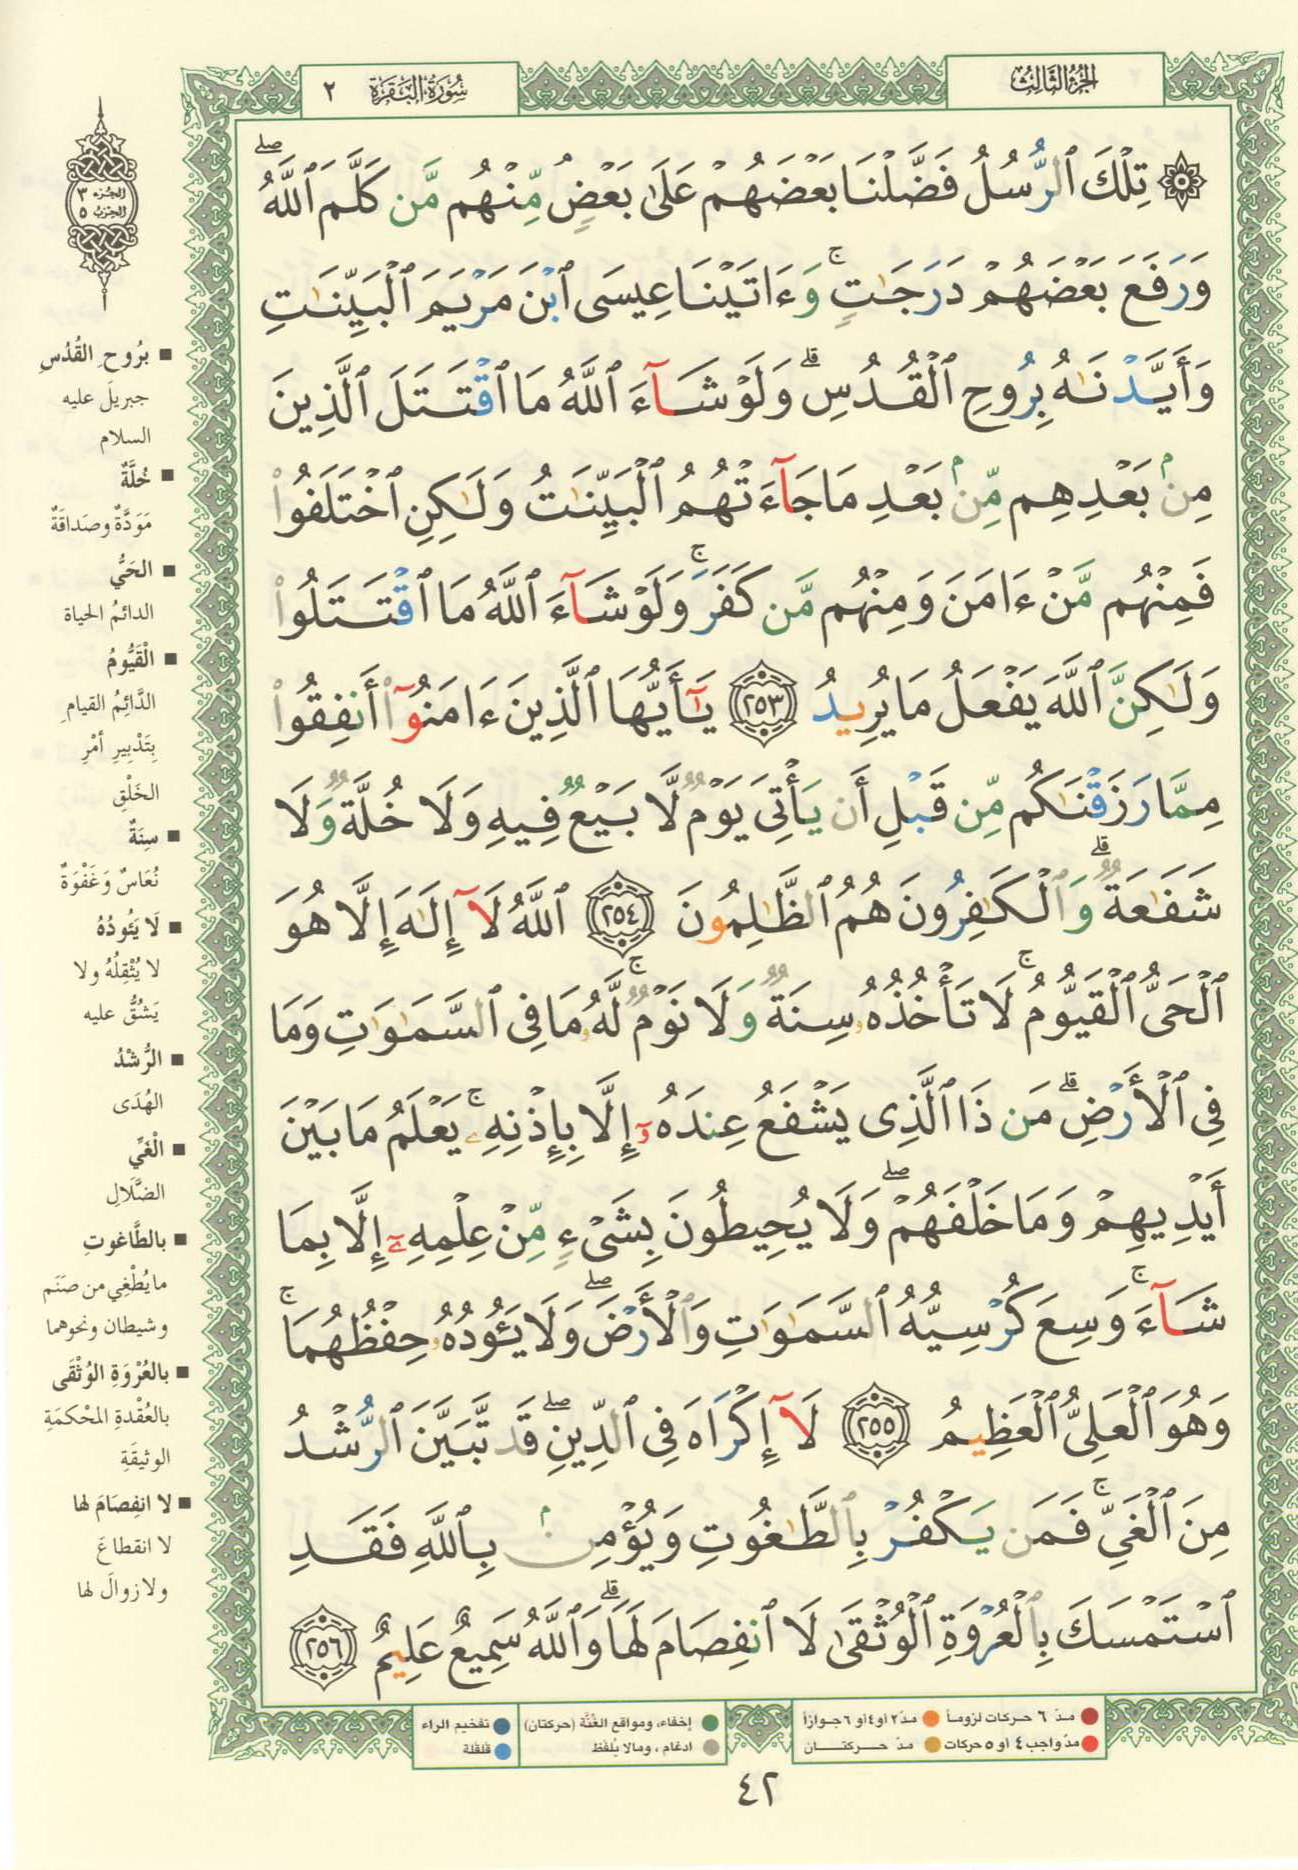 الجزء الثالث
سورة البقرة ٢
۞ تِلْكَ ٱلرُّسُلُ فَضَّلْنَا بَعْضَهُمْ عَلَىٰ بَعْضٍۘ مِّنْهُم مَّن كَلَّمَ ٱللَّهُۖ
وَرَفَعَ بَعْضَهُمْ دَرَجَٰتٍۚ وَءَاتَيْنَا عِيسَى ٱبْنَ مَرْيَمَ ٱلْبَيِّنَٰتِ
وَأَيَّدْنَٰهُ بِرُوحِ ٱلْقُدُسِۗ وَلَوْ شَآءَ ٱللَّهُ مَا ٱقْتَتَلَ ٱلَّذِينَ
مِنۢ بَعْدِهِم مِّنۢ بَعْدِ مَا جَآءَتْهُمُ ٱلْبَيِّنَٰتُ وَلَٰكِنِ ٱخْتَلَفُوا۟
فَمِنْهُم مَّنْ ءَامَنَ وَمِنْهُم مَّن كَفَرَۚ وَلَوْ شَآءَ ٱللَّهُ مَا ٱقْتَتَلُوا۟
وَلَٰكِنَّ ٱللَّهَ يَفْعَلُ مَا يُرِيدُ ٢٥٣ يَٰٓأَيُّهَا ٱلَّذِينَ ءَامَنُوٓا۟ أَنفِقُوا۟
مِمَّا رَزَقْنَٰكُم مِّن قَبْلِ أَن يَأْتِىَ يَوْمٌ لَّا بَيْعٌ فِيهِ وَلَا خُلَّةٌ وَلَا
شَفَٰعَةٌۗ وَٱلْكَٰفِرُونَ هُمُ ٱلظَّٰلِمُونَ ٢٥٤ ٱللَّهُ لَآ إِلَٰهَ إِلَّا هُوَ
ٱلْحَىُّ ٱلْقَيُّومُۚ لَا تَأْخُذُهُۥ سِنَةٌ وَلَا نَوْمٌۚ لَّهُۥ مَا فِى ٱلسَّمَٰوَٰتِ وَمَا
فِى ٱلْأَرْضِۗ مَن ذَا ٱلَّذِى يَشْفَعُ عِندَهُۥٓ إِلَّا بِإِذْنِهِۦۚ يَعْلَمُ مَا بَيْنَ
أَيْدِيهِمْ وَمَا خَلْفَهُمْۖ وَلَا يُحِيطُونَ بِشَىْءٍ مِّنْ عِلْمِهِۦٓ إِلَّا بِمَا
شَآءَۚ وَسِعَ كُرْسِيُّهُ ٱلسَّمَٰوَٰتِ وَٱلْأَرْضَۖ وَلَا يَـُٔودُهُۥ حِفْظُهُمَاۚ
وَهُوَ ٱلْعَلِىُّ ٱلْعَظِيمُ ٢٥٥ لَآ إِكْرَاهَ فِى ٱلدِّينِۖ قَد تَّبَيَّنَ ٱلرُّشْدُ
مِنَ ٱلْغَىِّۚ فَمَن يَكْفُرْ بِٱلطَّٰغُوتِ وَيُؤْمِنۢ بِٱللَّهِ فَقَدِ
ٱسْتَمْسَكَ بِٱلْعُرْوَةِ ٱلْوُثْقَىٰ لَا ٱنفِصَامَ لَهَاۗ وَٱللَّهُ سَمِيعٌ عَلِيمٌ ٢٥٦
الجزء ٣
الحزب ٥
■ بِرُوحِ القُدُسِ
جبريلَ عليه
السلام
■ خُلَّةٌ
مَوَدَّةٌ وصَداقَةٌ
■ الحَيُّ
الدائمُ الحياة
■ الْقَيُّومُ
الدَّائِمُ القيامِ
بِتَدْبِيرِ أمْرِ
الخَلْقِ
■ سِنَةٌ
نُعَاسٌ وَغَفْوَةٌ
■ لَا يَئُودُهُ
لا يُثْقِلُهُ ولا
يَشُقُّ عليه
■ الرُّشْدُ
الهُدَى
■ الْغَيِّ
الضَّلَالِ
■ بالطَّاغوتِ
ما يُطْغِي من صَنَم
وشيطان ونحوهما
■ بالعُرْوَةِ الوُثْقَى
بالعُقْدةِ المحْكمَةِ
الوثيقَةِ
■ لا انفِصَامَ لها
لا انقطاعَ
ولا زوالَ لها
مدّ ٦ حركات لزوماً
مدّ ٢ او ٤ او ٦ جوازاً
مدّ واجب ٤ او ٥ حركات
مدّ حركتان
إخفاء، ومواقع الغُنَّة (حركتان)
ادغام، ومالا يُلفَظ
تفخيم الراء
قلقلة
٤٢